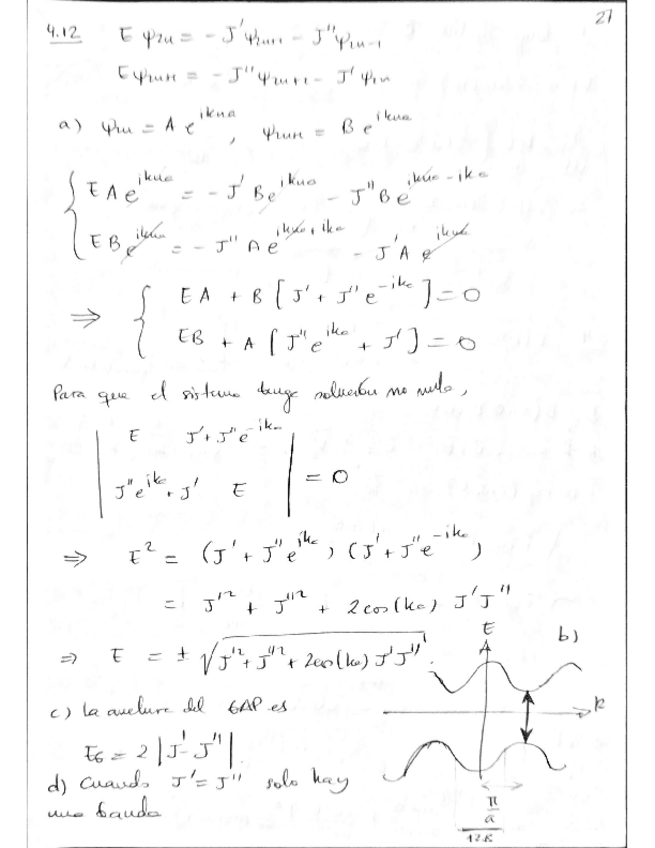 27
4.12 E ψ2n = - J'ψ2n+1 - J''ψ2n-1
E ψ2n+1 = - J''ψ2n+2 - J'ψ2n
a) ψ2n = A e^{ikna}, ψ2n+1 = B e^{ikna}
E A e^{ikna} = - J' B e^{ikna} - J'' B e^{ikna - ika}
E B e^{ikna} = - J'' A e^{ikna + ika} - J' A e^{ikna}
⇒ { E A + B [ J' + J'' e^{-ika} ] = 0
E B + A [ J'' e^{ika} + J' ] = 0
Para que el sistema tenga solución no nula,
| E J' + J'' e^{-ika} |
| J'' e^{ika} + J' E | = 0
⇒ E² = (J' + J'' e^{ika}) (J' + J'' e^{-ika})
= J'² + J''² + 2cos(ka) J'J''
⇒ E = ± √(J'² + J''² + 2cos(ka) J'J'')
b)
E
k
π/a
1ZB
c) la anchura del GAP es
EG = 2 |J' - J''|
d) Cuando J' = J'' solo hay
una banda